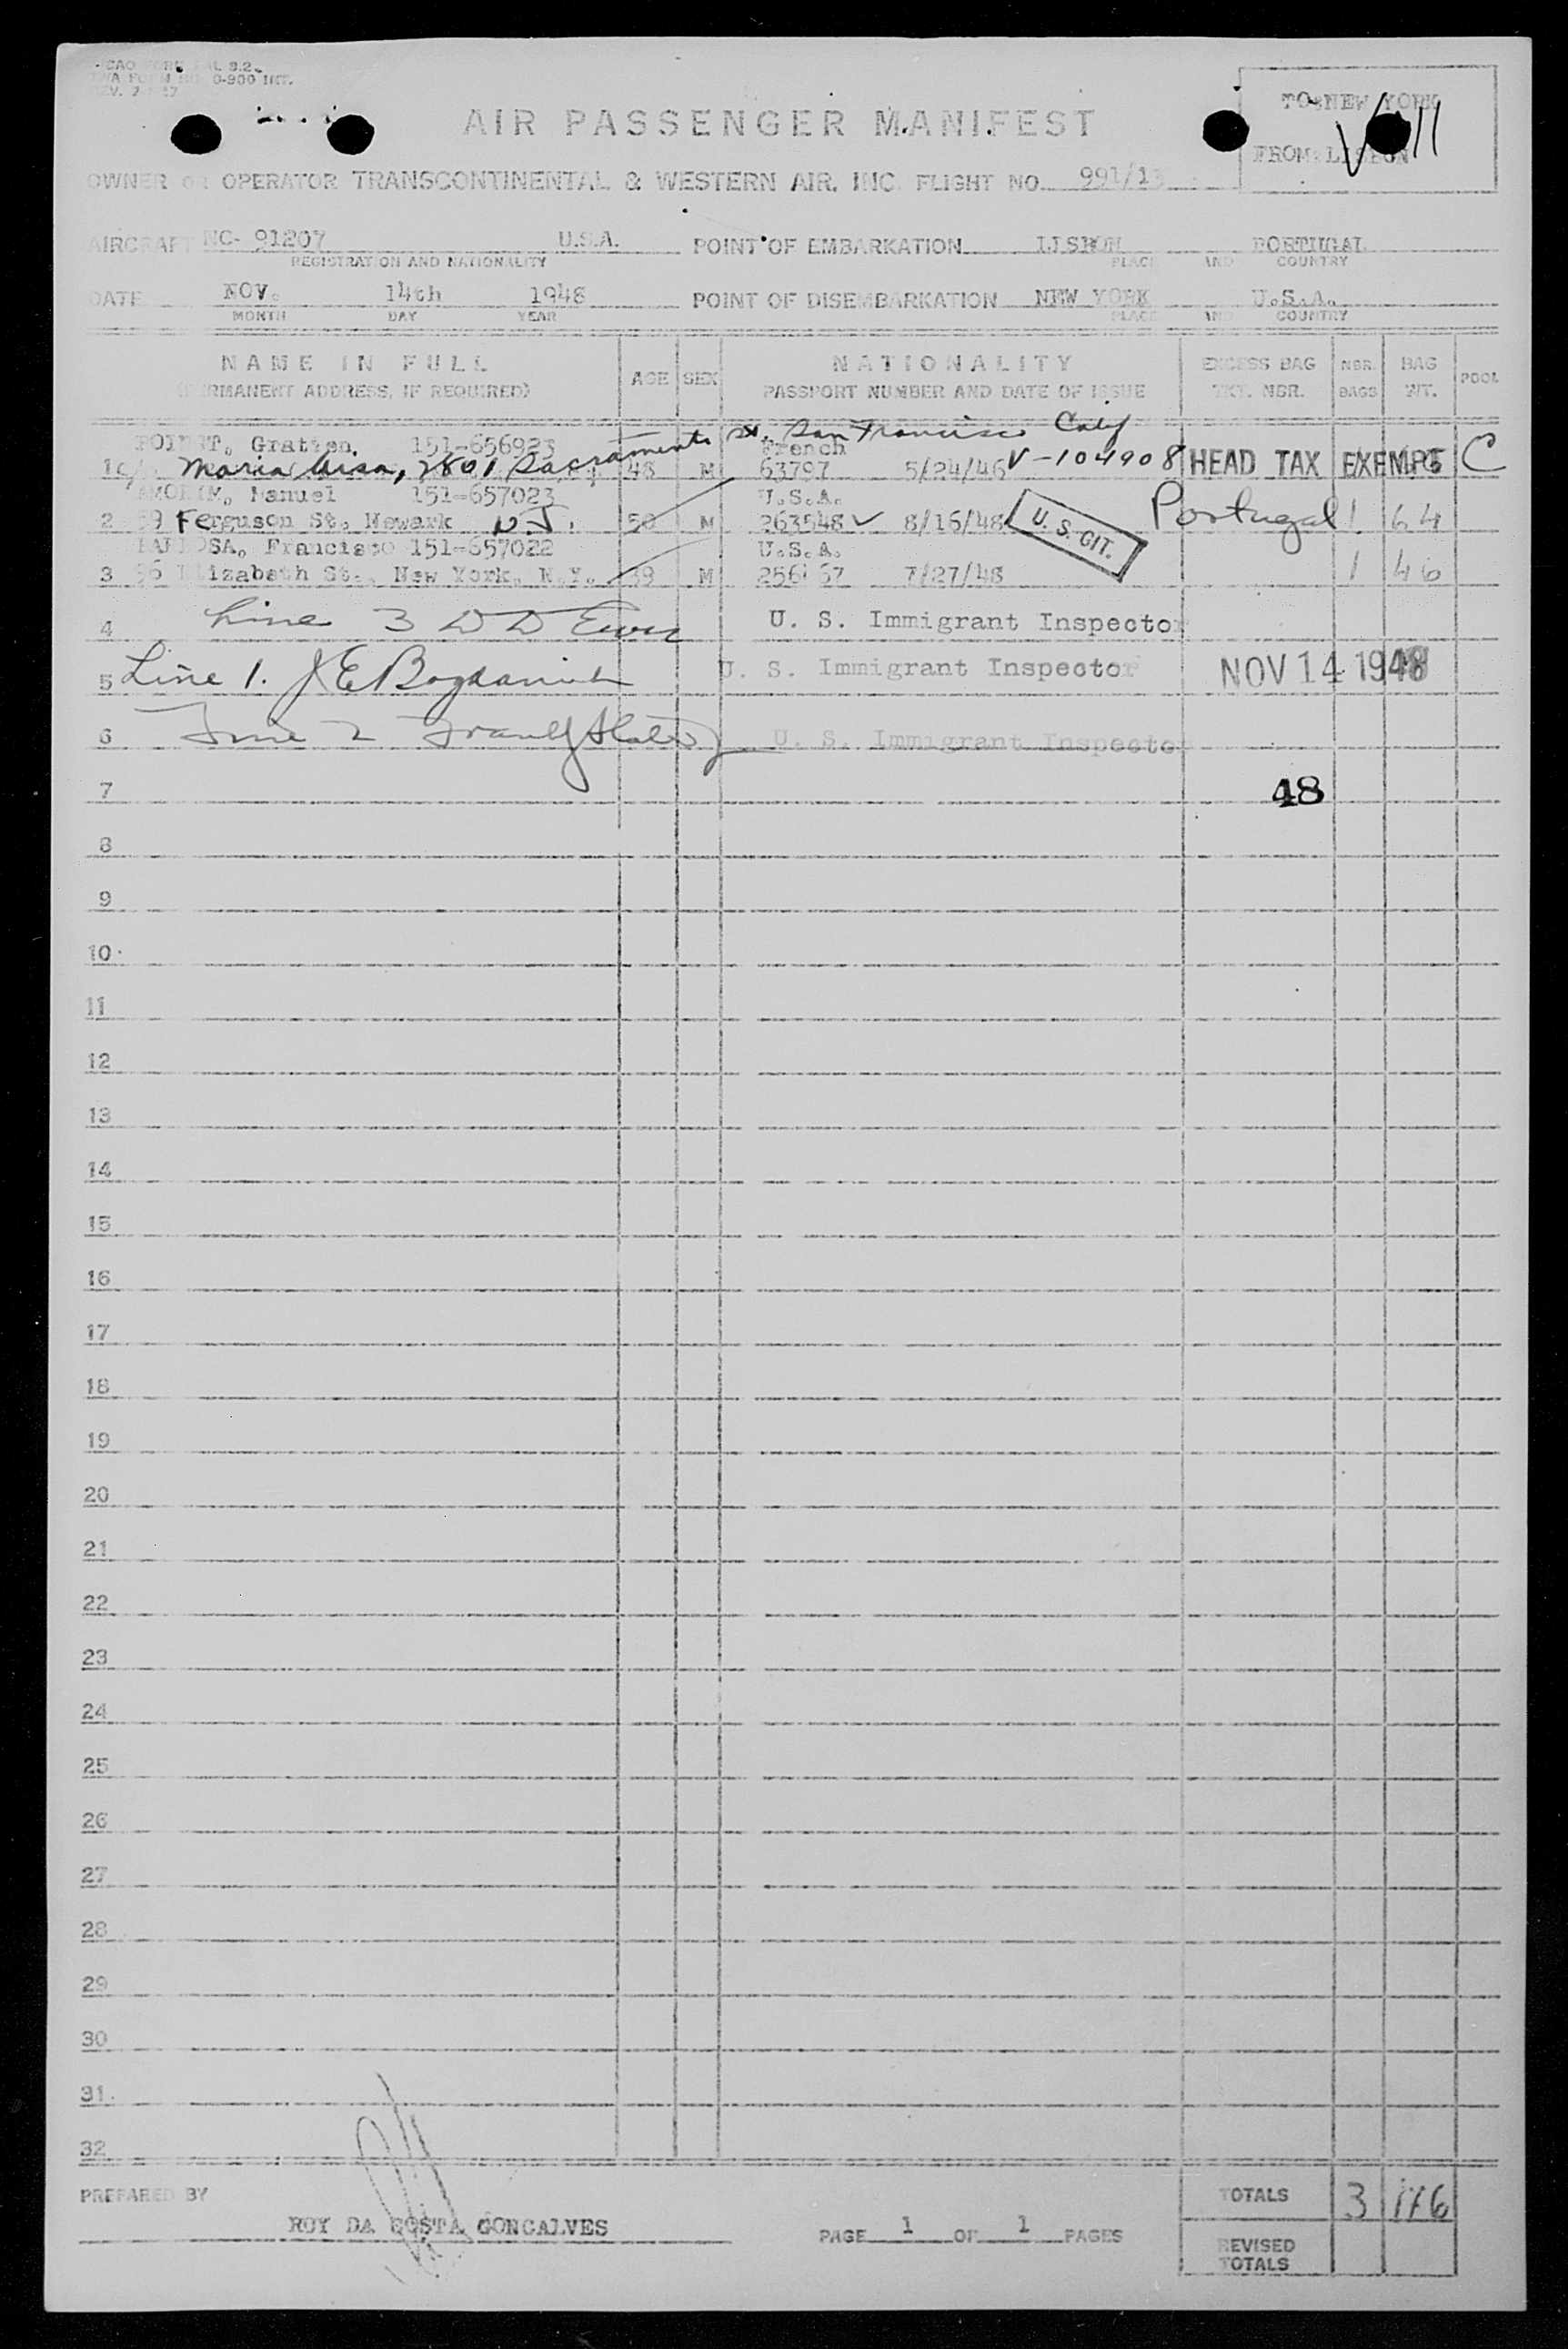 0-900 INT.
AIR PASSENGER MANIFEST
TO: NEW YORK
FROM: LISBON
OWNER OR OPERATOR TRANSCONTINENTAL & WESTERN AIR, INC. FLIGHT NO. 991/13
AIRCRAFT NC- 91207 U.S.A. POINT OF EMBARKATION LISBON PORTUGAL
REGISTRATION AND NATIONALITY PLACE AND COUNTRY
DATE NOV. 14th 1948 POINT OF DISEMBARKATION NEW YORK U.S.A.
MONTH DAY YEAR PLACE AND COUNTRY
NAME IN FULL AGE SEX NATIONALITY EXCESS BAG NBR. BAG POOL
(PERMANENT ADDRESS, IF REQUIRED) PASSPORT NUMBER AND DATE OF ISSUE TKT. NBR. BAGS WT.
Gratien 151-656923 French
1 c/o Maria 2801 Sacramento St. San Francisco Calif 48 M 63797 5/24/46 V-104908 HEAD TAX EXEMPT C
AMORIM, Manuel 151-657023 U.S.A.
2 59 Ferguson St. Newark N.J. 50 M 263548 8/16/48 U. S. CIT. Portugal 1 64
BARBOSA, Francisco 151-657022 U.S.A.
3 Elizabeth St., New York, N.Y. 39 M 7/27/48 1 46
4 Line 3 U. S. Immigrant Inspector
5 Line 1. J E U. S. Immigrant Inspector NOV 14 1948
6 Line 2 U. S. Immigrant Inspector
7 48
8
9
10
11
12
13
14
15
16
17
18
19
20
21
22
23
24
25
26
27
28
29
30
31
32
PREPARED BY ROY DA COSTA GONCALVES PAGE 1 OF 1 PAGES
TOTALS 3 176
REVISED
TOTALS